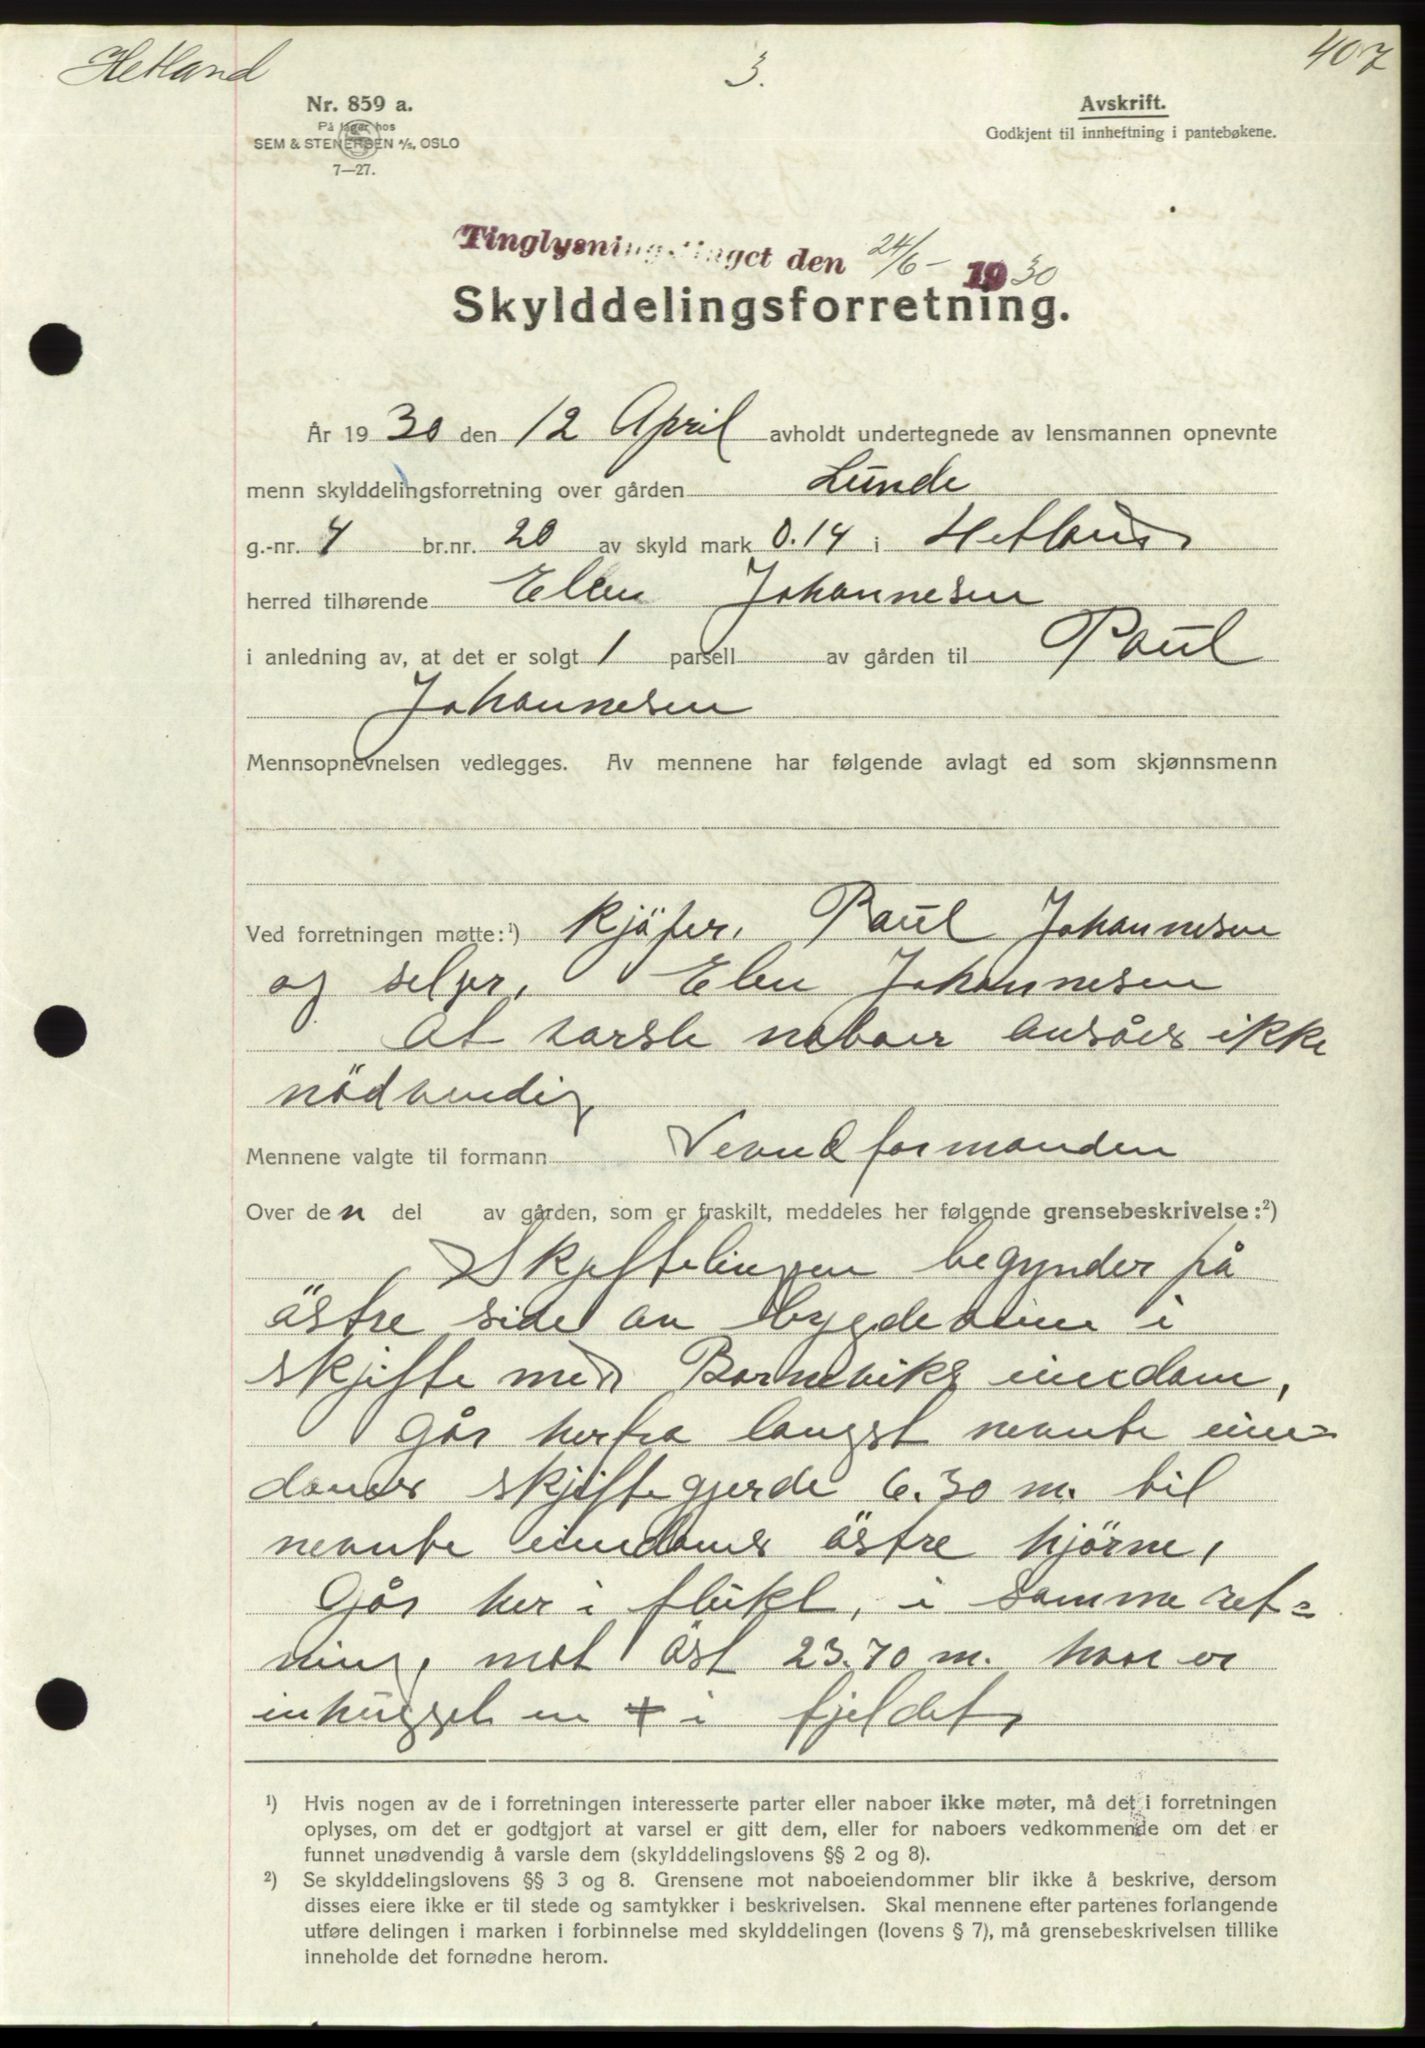 Hetland
3.
407
Nr. 859 a.
På lager hos
SEM & STENERSEN A/S, OSLO
7—27.
Avskrift.
Godkjent til innheftning i pantebøkene.
Tinglysningstinget den 24/6 - 1930
Skylddelingsforretning.
År 1930 den 12 April avholdt undertegnede av lensmannen opnevnte
menn skylddelingsforretning over gården Lunde
g.-nr. 4 br.nr. 20 av skyld mark 0.14 i Hetland
herred tilhørende Elen Johannesen
i anledning av, at det er solgt 1 parsell av gården til Paul
Johannesen
Mennsopnevnelsen vedlegges. Av mennene har følgende avlagt ed som skjønnsmenn
Ved forretningen møtte:¹) kjöper, Paul Johannesen
og selger, Elen Johannesen
At varsle naboer ansåes ikke
nödvendig
Mennene valgte til formann formanden
Over den del av gården, som er fraskilt, meddeles her følgende grensebeskrivelse:²)
Skjiftelingen begynder på
östre side av bygdeveien i
skjifte med Barneviks eiendom,
Går herfra langst nevnte eien=
doms skjiftegjerde 6.30 m. til
nevnte eiendoms östre hjörne,
Går her i flukt, i samme ret=
ning, mot öst 23.70 m. hvor er
inhugget en + i fjeldet,
¹) Hvis nogen av de i forretningen interesserte parter eller naboer ikke møter, må det i forretningen
oplyses, om det er godtgjort at varsel er gitt dem, eller for naboers vedkommende om det er
funnet unødvendig å varsle dem (skylddelingslovens §§ 2 og 8).
²) Se skylddelingslovens §§ 3 og 8. Grensene mot naboeiendommer blir ikke å beskrive, dersom
disses eiere ikke er til stede og samtykker i beskrivelsen. Skal mennene efter partenes forlangende
utføre delingen i marken i forbinnelse med skylddelingen (lovens § 7), må grensebeskrivelsen tillike
inneholde det fornødne herom.